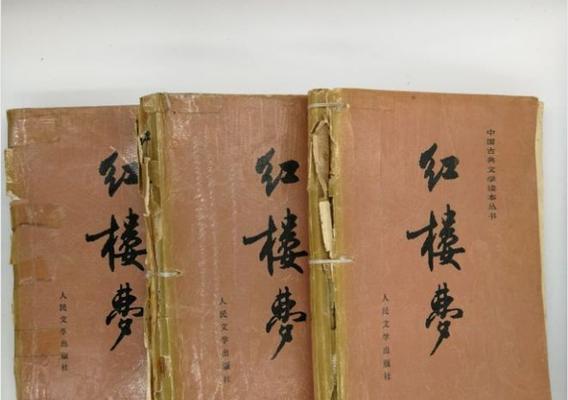 红楼梦
人民文学出版社
红楼梦
人民文学出版社
中国古典文学读本丛书
红楼梦
人民文学出版社